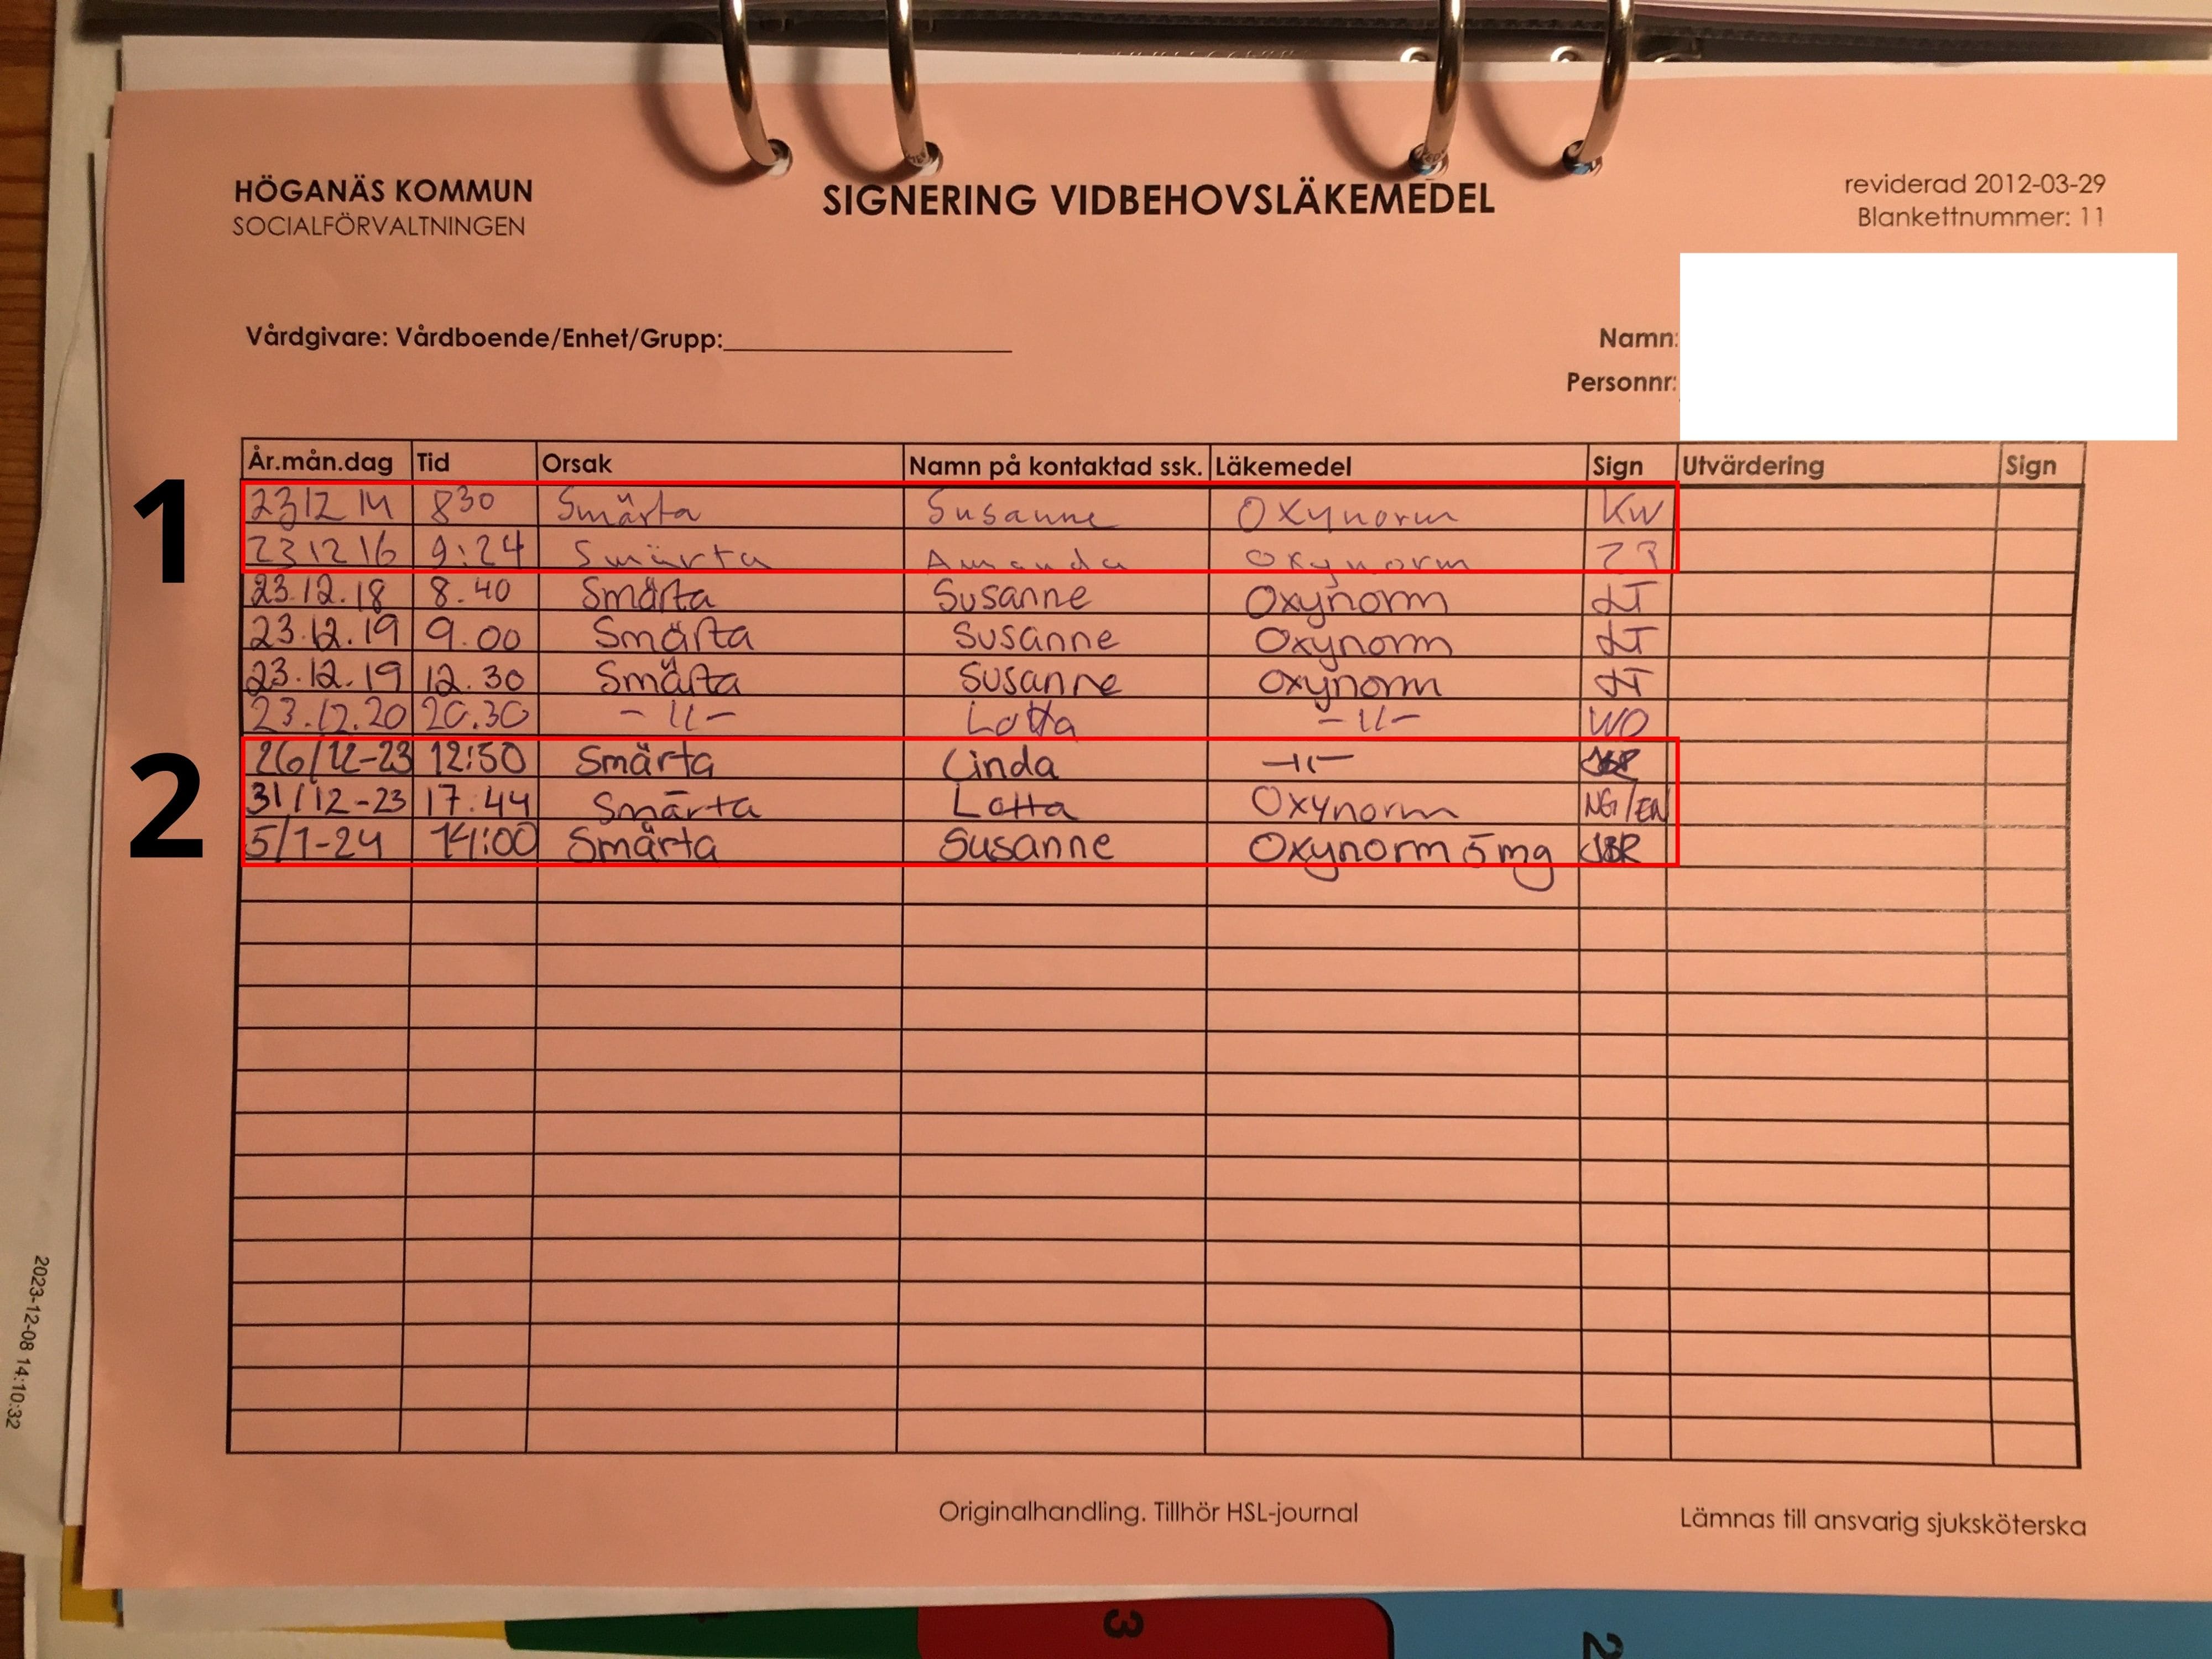 HÖGANÄS KOMMUN
SOCIALFÖRVALTNINGEN
SIGNERING VIDBEHOVSLÄKEMEDEL
reviderad 2012-03-29
Blankettnummer: 11
Vårdgivare: Vårdboende/Enhet/Grupp:
Namn:
Personnr:
År.mån.dag Tid Orsak Namn på kontaktad ssk. Läkemedel Sign Utvärdering Sign
1
231214 830 Smärta Susanne Oxynorm KW
231216 9:24 Smärta Amanda Oxynorm
23.12.18 8.40 Smärta Susanne Oxynorm
23.12.19 9.00 Smärta Susanne Oxynorm
23.12.19 12.30 Smärta Susanne Oxynorm
23.12.20 20.30 -11- Lotta -11- WO
2
26/12-23 12:50 Smärta Linda -11-
31/12-23 17.44 Smärta Lotta Oxynorm NG/EN
5/1-24 14:00 Smärta Susanne Oxynorm 5 mg JBR
Originalhandling. Tillhör HSL-journal
Lämnas till ansvarig sjuksköterska
2023-12-08 14:10:32
3
2